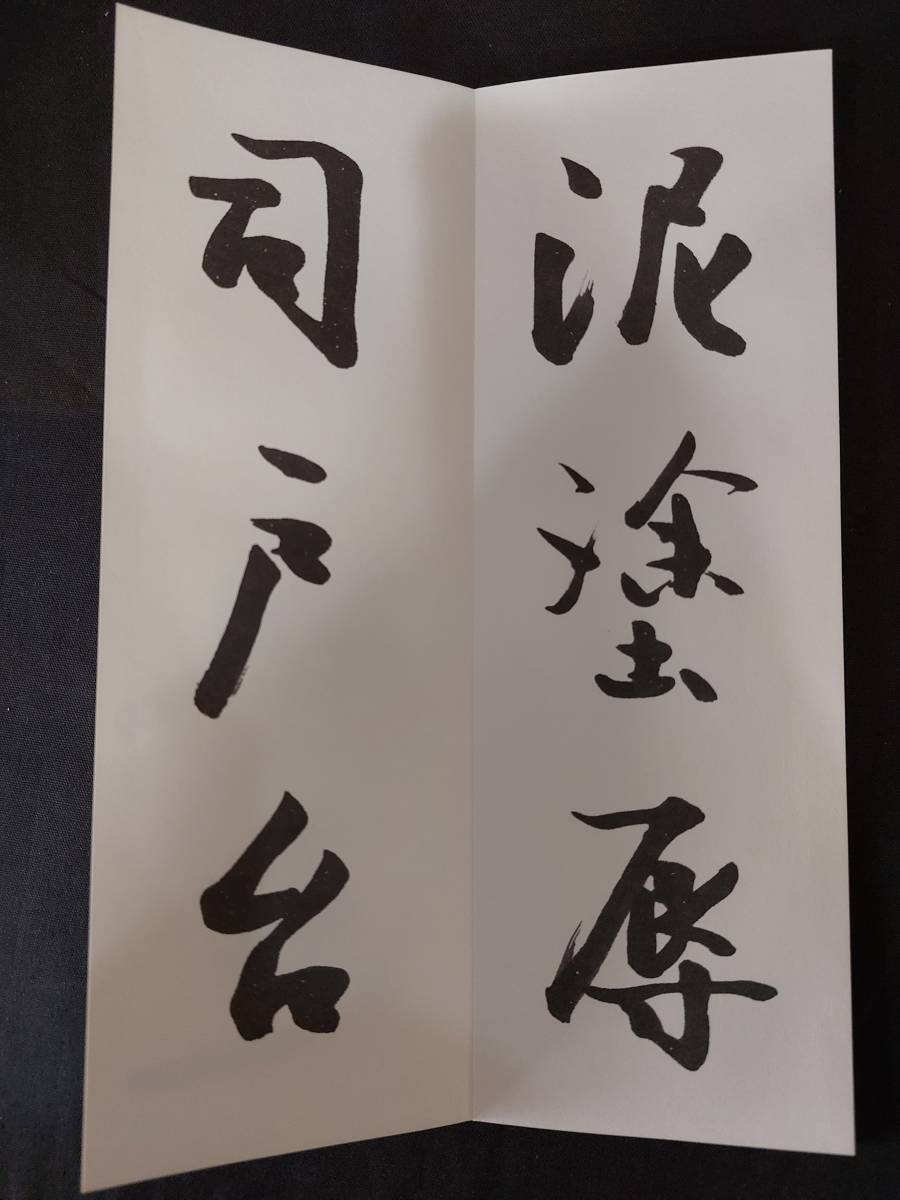 泥塗辱
司戸台